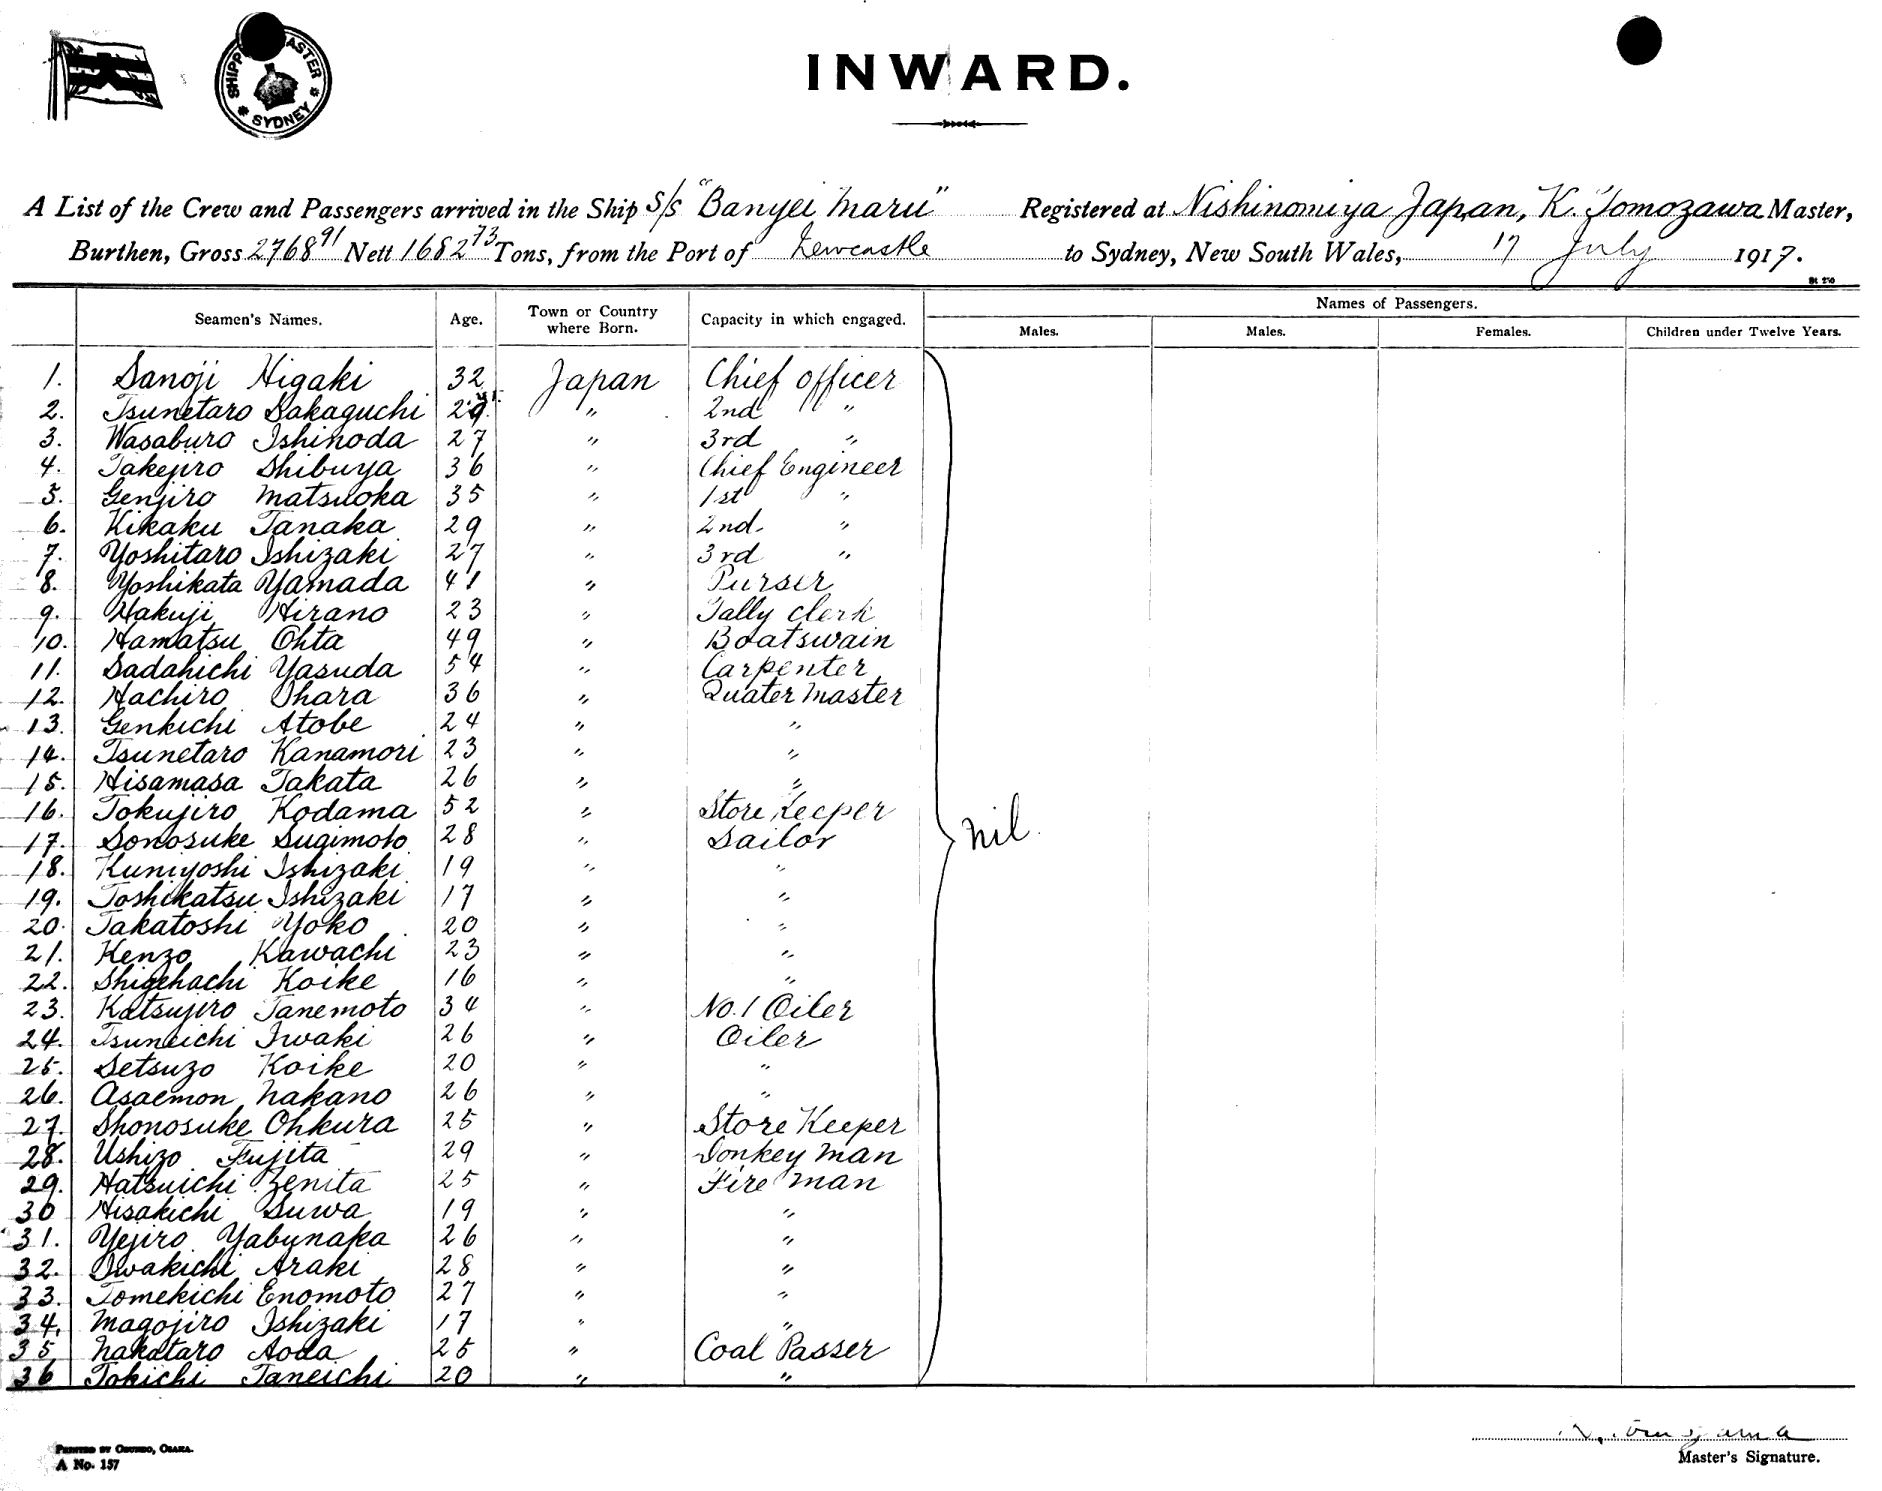 SHIPP ASTER
SYDNEY
INWARD.
A List of the Crew and Passengers arrived in the Ship S/S "Banyei Maru" Registered at Nishinomiya Japan, K. Tomozawa Master,
Burthen, Gross 2768 91 Nett 1682 73 Tons, from the Port of Newcastle to Sydney, New South Wales, 17 July 1917.
St 250
Seamen's Names. Age. Town or Country where Born. Capacity in which engaged. Names of Passengers.
Males. Males. Females. Children under Twelve Years.
1. Sanoji Higaki 32 Japan Chief officer
2. Tsunetaro Sakaguchi 29 " 2nd "
3. Wasaburo Ishinoda 27 " 3rd "
4. Takejiro Shibuya 36 " Chief Engineer
5. Genjiro Matsuoka 35 " 1st "
6. Kikaku Tanaka 29 " 2nd "
7. Yoshitaro Ishizaki 27 " 3rd "
8. Yoshikata Yamada 41 " Purser
9. Hakuji Hirano 23 " Tally clerk
10. Hamatsu Ohta 49 " Boatswain
11. Sadahichi Yasuda 54 " Carpenter
12. Hachiro Ohara 36 " Quater Master
13. Genkichi Atobe 24 " "
14. Tsunetaro Kanamori 23 " "
15. Hisamasa Takata 26 " "
16. Tokujiro Kodama 52 " Store Keeper
17. Sonosuke Sugimoto 28 " Sailor nil.
18. Kuniyoshi Ishizaki 19 " "
19. Toshikatsu Ishizaki 17 " "
20. Takatoshi Yoko 20 " "
21. Kenzo Kawachi 23 " "
22. Shigehachi Koike 16 " "
23. Katsujiro Tanemoto 34 " No. 1 Oiler
24. Tsuneichi Iwaki 26 " Oiler
25. Setsuzo Koike 20 " "
26. Asaemon Nakano 26 " "
27. Shonosuke Ohkura 25 " Store Keeper
28. Ushizo Fujita 29 " Donkey man
29. Hatsuichi Zenita 25 " Fire man
30 Hisakichi Suwa 19 " "
31. Yejiro Yabunaka 26 " "
32. Iwakichi Araki 28 " "
33. Tomekichi Enomoto 27 " "
34. Magojiro Ishizaki 17 " "
35 Nakataro Aoda 25 " Coal Passer
36 Tokichi Taneichi 20 " "
Master's Signature.
A No. 157